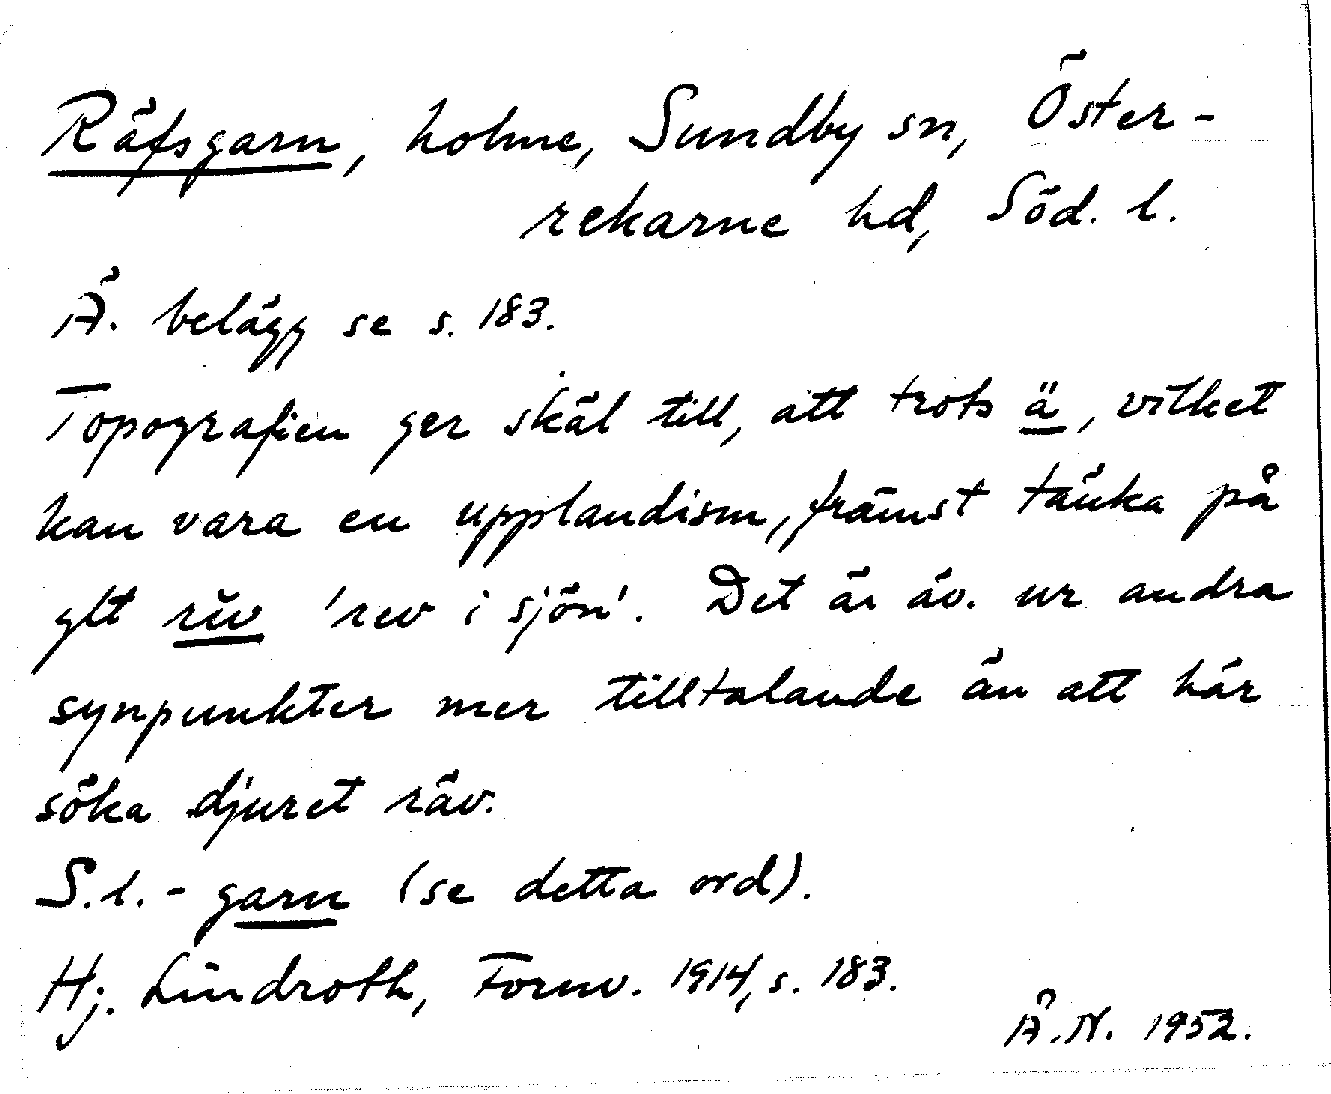 Räfsgarn, holme, Sundby sn, Öster-
rekarne hd, Söd. l.
Ä. belägg se s. 183.
Topografien ger skäl till, att trots ä, vilket
kan vara en upplandism, främst tänka på
ylt rĭv 'rev i sjön'. Det är äv. ur andra
synpunkter mer tilltalande än att här
söka djuret räv.
S.l. -garn (se detta ord).
Hj. Lindroth, Fornv. 1914, s. 183.
Å.N. 1952.